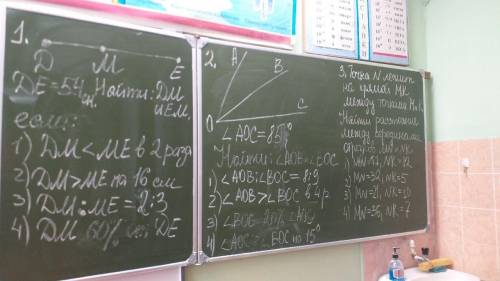 1.
D M E
DE = 54 см. Найти: DM
и EM,
если:
1) DM < ME в 2 раза
2) DM > ME на 16 см
3) DM : ME = 2:3
4) DM 60% DE
2.
A
B
C
O
∠AOC = 85°
Найти: ∠AOB и ∠BOC
1) ∠AOB : ∠BOC = 8:9
2) ∠AOB > ∠BOC в 4 р.
3) ∠BOC 20% ∠AOB
4) ∠AOC ∠BOC на 15°
3. Точка N лежит
на прямой MK
между точками M и K.
Найти расстояние
между
MN и NK
1) MN = NK = 12
2) MN = 32, NK = 5
3) MN = 21, NK = 10
4) MN = 36, NK = 7